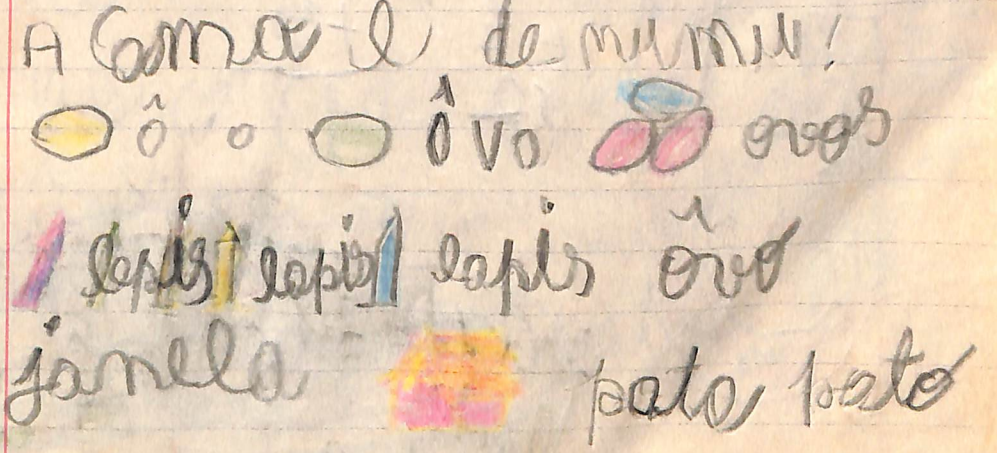 A cama é de mimim!
ô o ôvo ovos
lapis lapis lapis ôvo
janela pata pato